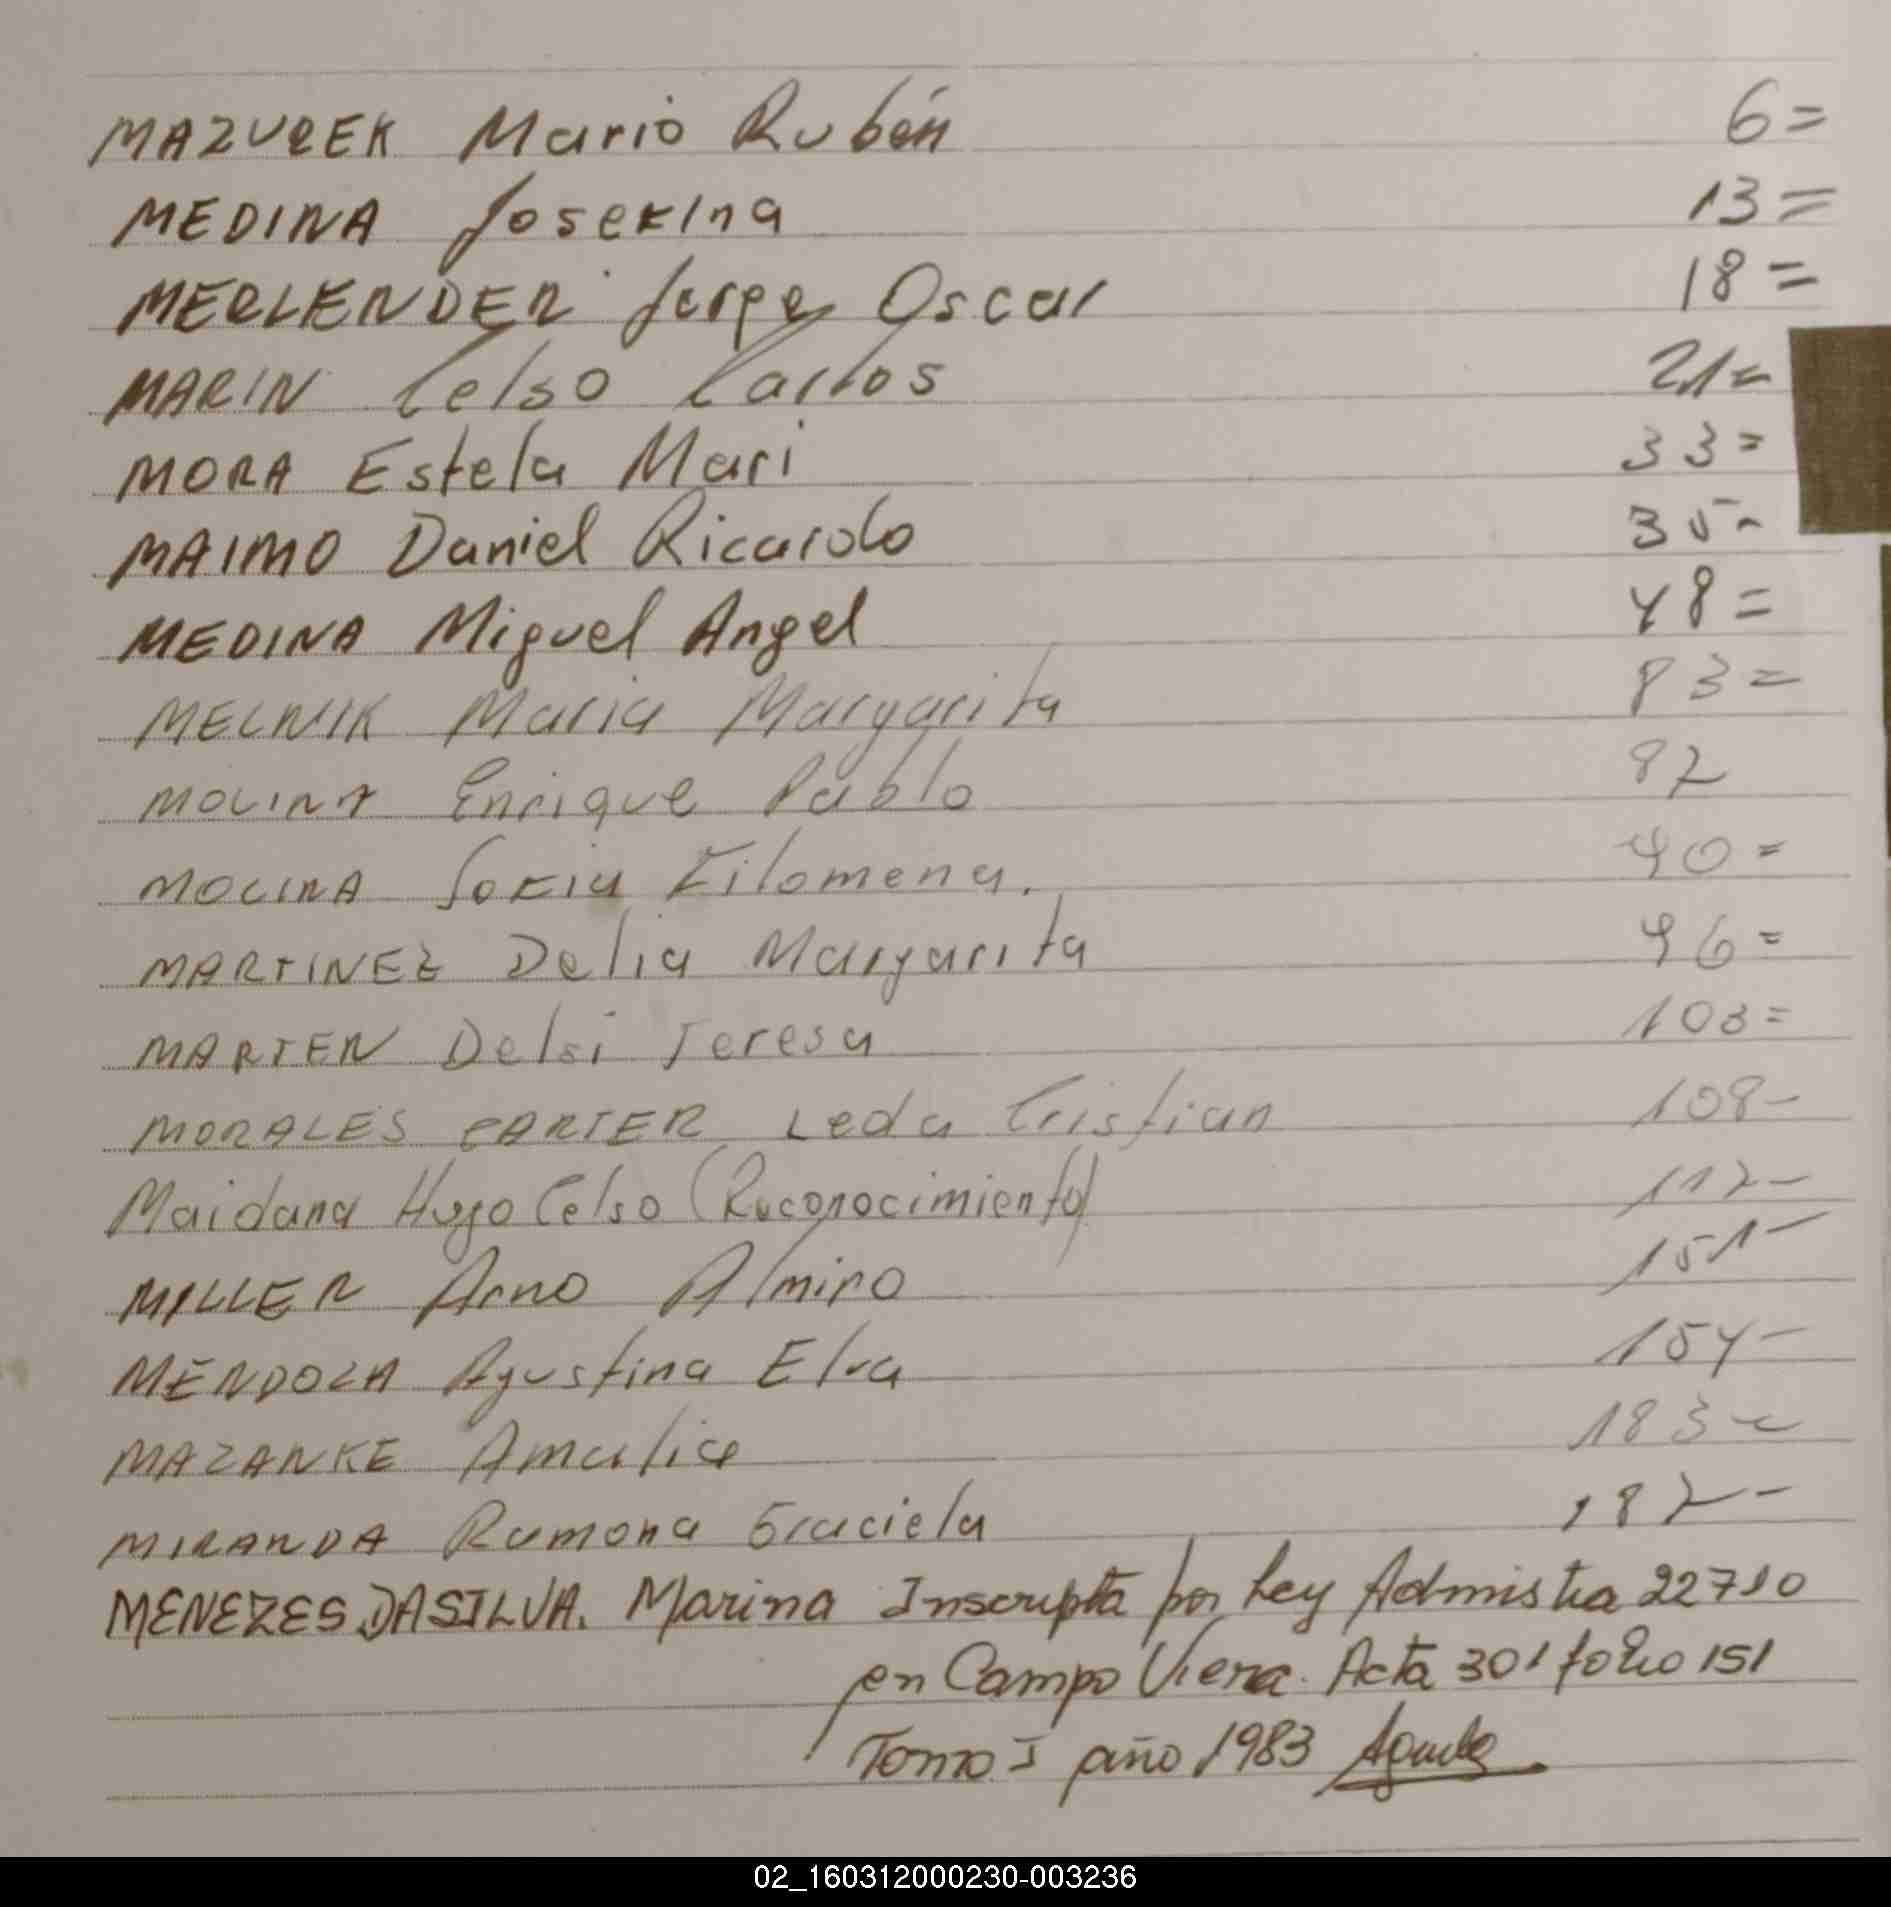 MAZUREK Mario Rubén 6=
MEDINA Josefina 13=
MERLENDER Jorge Oscar 18=
MARIN Celso Carlos 21=
MORA Estela Mari 33=
MAIMO Daniel Ricardo 35-
MEDINA Miguel Angel 48=
MELNIK Maria Margarita 83=
MOLINA Enrique Pablo 87
MOLINA Sofia Filomena. 90=
MARTINEZ Delia Margarita 96=
MARTEN Delsi Teresa 103=
MORALES CARTER Leda Cristian 108-
Maidana Hugo Celso (Reconocimiento) 117-
MILLER Arno Almiro 151-
MENDOZA Agustina Elva 154-
MAZANKE Amalia 183-
MIRANDA Ramona Graciela 187-
MENEZES DASILVA. Marina Inscripta por Ley Admistra 22710
en Campo Viera. Acta 301 folio 151
Tomo I año 1983
02_160312000230-003236